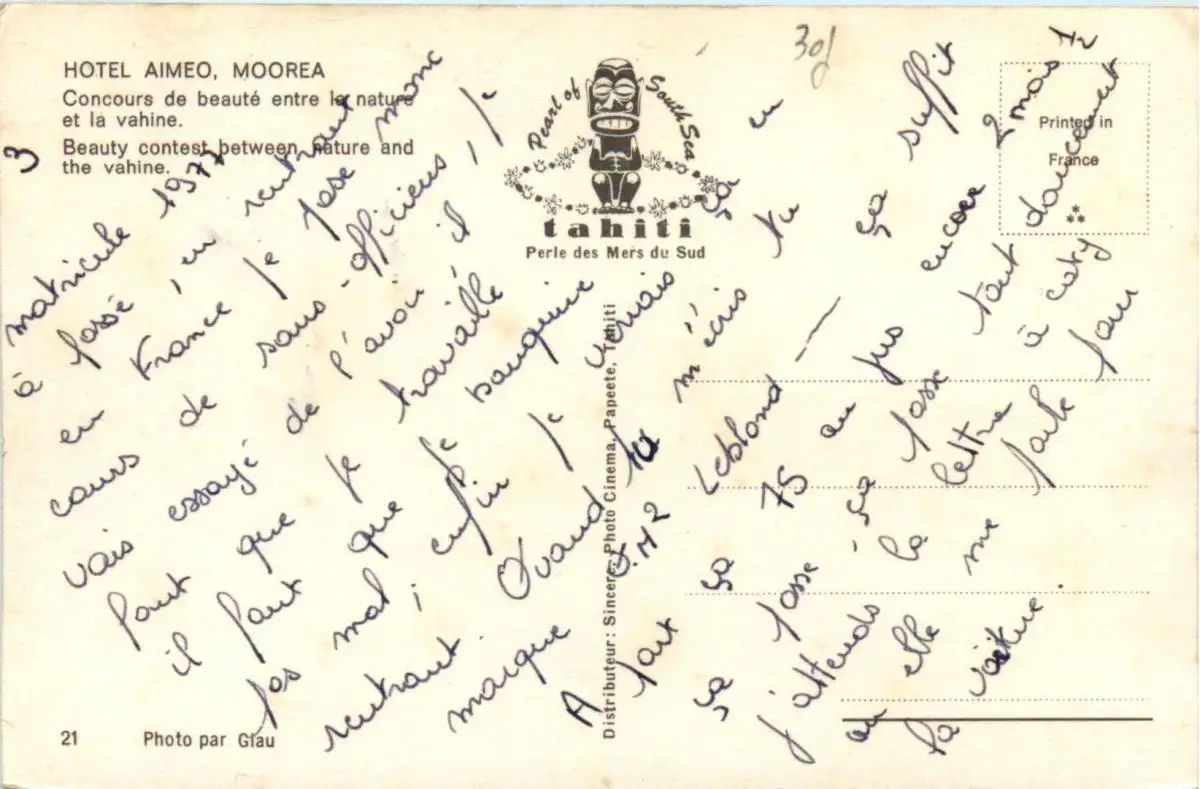 HOTEL AIMEO, MOOREA
Concours de beauté entre la nature
et la vahine.
Beauty contest between nature and
the vahine.
3
30f
Pearl of South Sea
tahiti
Perle des Mers du Sud
Printed in
France
matricule 1977
à passé, en rentrant
en France je pose mon
cours de sous-officiers, je
vais essayé de l'avoir il
faut que je travaille
il faut que je bouquine
pas mal, enfin je verrais ça en
rentrant. Quand tu m'écris tu
marque Q.M2 Leblond — ça suffit
A part ça 75 au jus encore 2 mois 1/2
ça passé, ça passe tout doucement
j'attends la lettre à caty
ou elle me parle pour
la voiture.
Distributeur: Sincere, Photo Cinema, Papeete, Tahiti
21 Photo par Giau